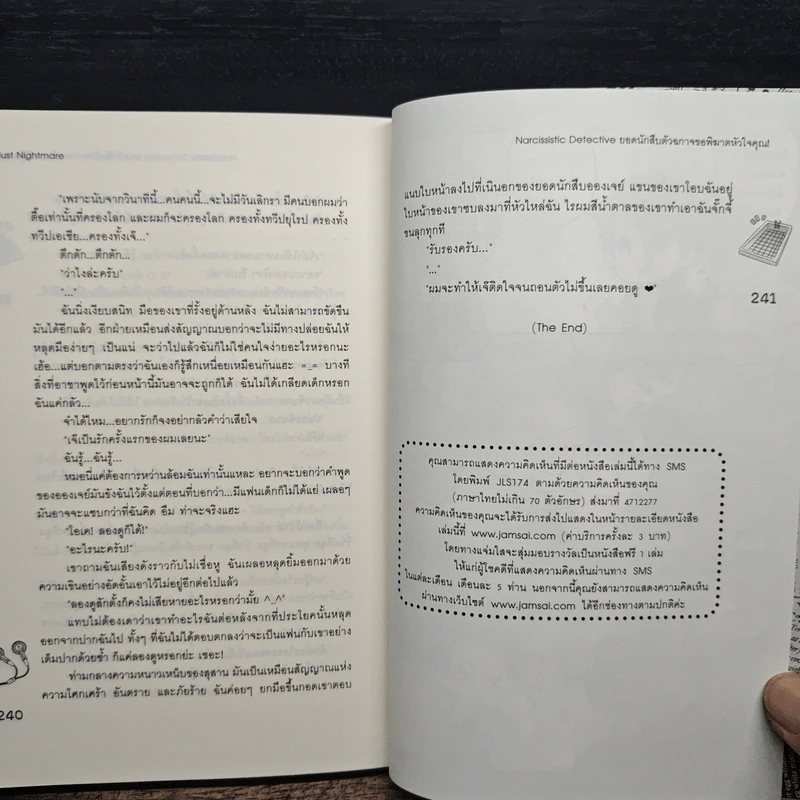 Just Nightmare
"เพราะนับจากวินาทีนี้...คนคนนี้...จะไม่มีวันเลิกรา มีคนบอกผมว่า
ตื๊อเท่านั้นที่ครองโลก และผมก็จะครองโลก ครองทั้งทวีปยุโรป ครองทั้ง
ทวีปเอเชีย...ครองทั้งเจ๊..."
ตึกตัก...ตึกตัก...
"ว่าไงล่ะครับ"
"..."
ฉันนิ่งเงียบสนิท มือของเขาที่รั้งอยู่ด้านหลัง ฉันไม่สามารถขัดขืน
มันได้อีกแล้ว อีกฝ่ายเหมือนส่งสัญญาณบอกว่าจะไม่มีทางปล่อยฉันให้
หลุดมือง่ายๆ เป็นแน่ จะว่าไปแล้วฉันก็ไม่ใช่คนใจง่ายอะไรหรอกนะ
เฮ้อ...แต่บอกตามตรงว่าฉันเองก็รู้สึกเหนื่อยเหมือนกันแฮะ =_= บางที
สิ่งที่อาชาพูดไว้ก่อนหน้านี้มันอาจจะถูกก็ได้ ฉันไม่ได้เกลียดเด็กหรอก
ฉันแค่กลัว...
จำได้ไหม...อยากรักก็จงอย่ากลัวคำว่าเสียใจ
"เจ๊เป็นรักครั้งแรกของผมเลยนะ"
ฉันรู้...ฉันรู้...
หมอนี่แค่ต้องการหว่านล้อมฉันเท่านั้นแหละ อยากจะบอกว่าคำพูด
ของอองเจย์มันขังฉันไว้ตั้งแต่ตอนที่บอกว่า...มีแฟนเด็กก็ไม่ได้แย่ เผลอๆ
มันอาจจะแซบกว่าที่ฉันคิด อืม ท่าจะจริงแฮะ
"โอเค! ลองดูก็ได้!"
"อะไรนะครับ!"
เขาถามฉันเสียงดังราวกับไม่เชื่อหู ฉันเผลอหลุดยิ้มออกมาด้วย
ความเขินอย่างอัดอั้นเอาไว้ไม่อยู่อีกต่อไปแล้ว
"ลองดูสักตั้งก็คงไม่เสียหายอะไรหรอกว่ามั้ย ^_^"
แทบไม่ต้องเดาว่าเขาทำอะไรฉันต่อหลังจากที่ประโยคนั้นหลุด
ออกจากปากฉันไป ทั้งๆ ที่ฉันไม่ได้ตอบตกลงว่าจะเป็นแฟนกับเขาอย่าง
เต็มปากด้วยซ้ำ ก็แค่ลองดูหรอกย่ะ เชอะ!
ท่ามกลางความหนาวเหน็บของสุสาน มันเป็นเหมือนสัญญาณแห่ง
ความโศกเศร้า อันตราย และภัยร้าย ฉันค่อยๆ ยกมือขึ้นกอดเขาตอบ
240
Narcissistic Detective ยอดนักสืบตัวฉกาจขอพิฆาตหัวใจคุณ!
แนบใบหน้าลงไปที่เนินอกของยอดนักสืบอองเจย์ แขนของเขาโอบฉันอยู่
ใบหน้าของเขาซบลงมาที่หัวไหล่ฉัน ไรผมสีน้ำตาลของเขาทำเอาฉันจั๊กจี้
ขนลุกทุกที
"รับรองครับ..."
"..."
"ผมจะทำให้เจ๊ติดใจจนถอนตัวไม่ขึ้นเลยคอยดู ❤"
241
(The End)
คุณสามารถแสดงความคิดเห็นที่มีต่อหนังสือเล่มนี้ได้ทาง SMS
โดยพิมพ์ JLS174 ตามด้วยความคิดเห็นของคุณ
(ภาษาไทยไม่เกิน 70 ตัวอักษร) ส่งมาที่ 4712277
ความคิดเห็นของคุณจะได้รับการส่งไปแสดงในหน้ารายละเอียดหนังสือ
เล่มนี้ที่ www.jamsai.com (ค่าบริการครั้งละ 3 บาท)
โดยทางแจ่มใสจะสุ่มมอบรางวัลเป็นหนังสือฟรี 1 เล่ม
ให้แก่ผู้โชคดีที่แสดงความคิดเห็นผ่านทาง SMS
ในแต่ละเดือน เดือนละ 5 ท่าน นอกจากนี้คุณยังสามารถแสดงความคิดเห็น
ผ่านทางเว็บไซต์ www.jamsai.com ได้อีกช่องทางตามปกติค่ะ